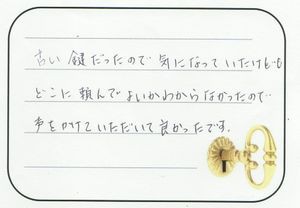 古い鍵だったので気になっていたけども
どこに頼んでよいかわからなかったので
声をかけていただいて良かったです。